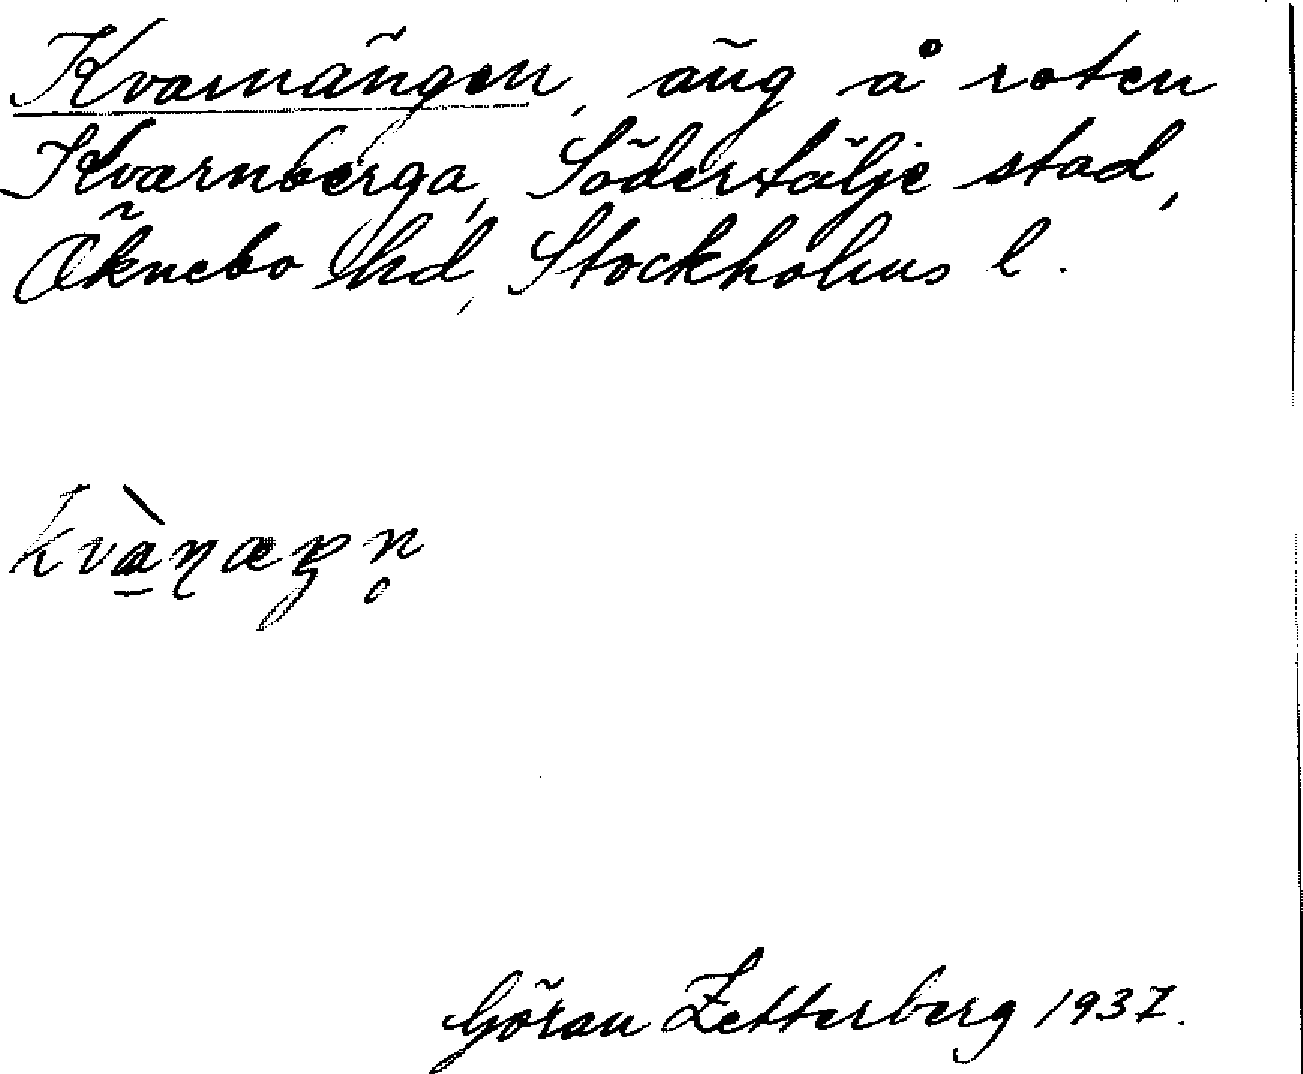 Kvarnängen, äng å roten
Kvarnberga, Södertälje stad,
Öknebo hd, Stockholms l.
Göran Zetterberg 1937.